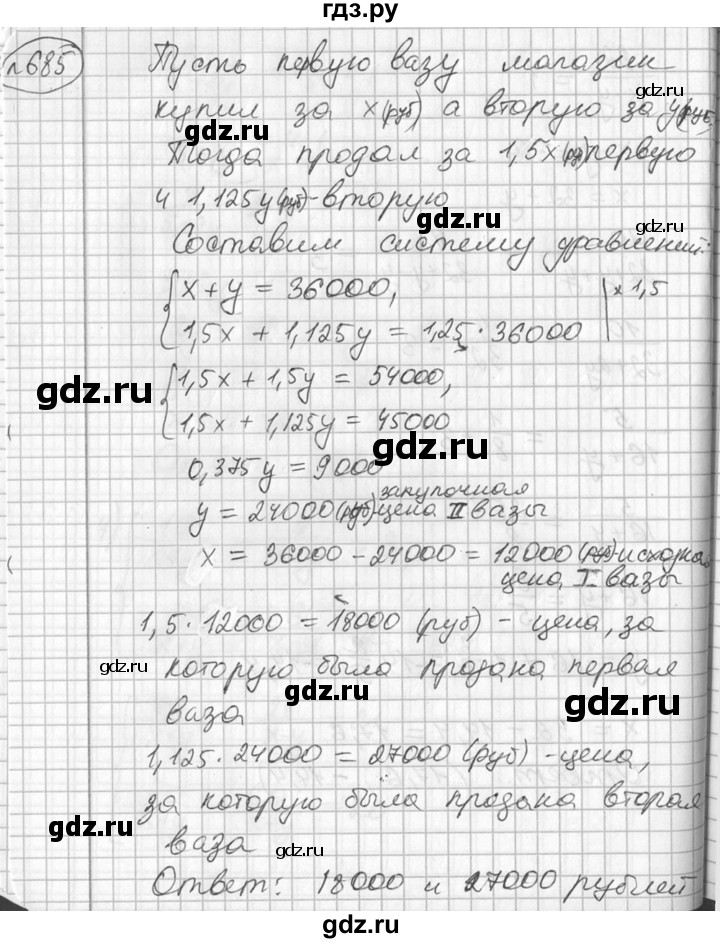 гдз.ру
№685
Пусть первую вазу магазин
купил за x(руб) а вторую за y(руб)
gdz.ru
gdz.ru
Тогда продал за 1,5x(р) первую
и 1,125y(руб)-вторую
gdz.ru
Составим систему уравнений:
{ x + y = 36000, | × 1,5
gdz.ru
1,5x + 1,125y = 1,25 · 36000
{ 1,5x + 1,5y = 54000,
gdz.ru
1,5x + 1,125y = 45000
gdz.ru
0,375y = 9000
закупочная
y = 24000(руб) цена II вазы
gdz.ru
gdz.ru
x = 36000 - 24000 = 12000 (руб)-исходная
цена I вазы
1,5 · 12000 = 18000 (руб) - цена, за
которую была продана первая
gdz.ru
gdz.ru
gdz.ru
ваза
1,125 · 24000 = 27000 (руб) - цена,
за которую была продана вторая
gdz.ru
gdz.ru
ваза
gdz.ru
Ответ: 18000 и 27000 рублей
gdz.ru
gdz.ru